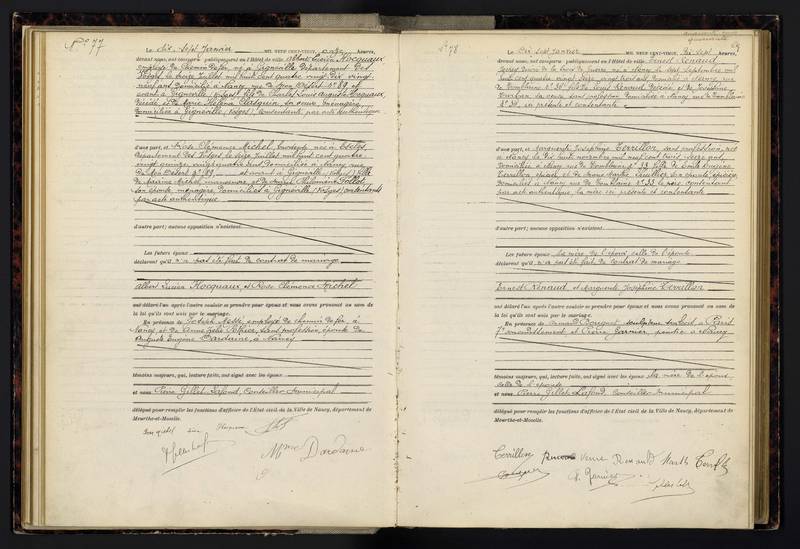 N° 77
Le dix sept Janvier MIL NEUF CENT-VINGT, onze heures,
devant nous, ont comparu publiquement en l'Hôtel de ville Albert Lucien Hocquaux
employé de Chemin de fer, né à Gignéville Département des
Vosges, le treize Juillet mil huit cent quatre vingt dix vingt
neuf ans domicilié à Nancy, rue de Mon Désert N° 89, et
avant à Gignéville (Vosges) fils de Charles Louis Auguste Hocquaux,
décédé, et de Marie Héléna sa veuve, ménagère,
domiciliée à Gignéville (Vosges) Consentante par acte authentique
D'une part, et Rose Clémence Michel, employée née à
Département des Vosges, le seize Juillet mil huit cent quatre
vingt quinze, vingt quatre ans domiciliée à Nancy rue
de Mon Désert N° 89, et avant à Gignéville (Vosges) fille
de Michel, manoeuvre, et de
son épouse, ménagère, domiciliés à Gignéville (Vosges) consentants
par acte authentique
d'autre part; aucune opposition n'existant.
Les futurs époux
déclarent qu'il n'a pas été fait de contrat de mariage
Albert Lucien Hocquaux, et Rose Clémence Michel
ont déclaré l'un après l'autre vouloir se prendre pour époux et nous avons prononcé au nom de
la loi qu'ils sont unis par le mariage.
En présence de Joseph employé de chemin de fer, à
Nancy, et de Anna sans profession, épouse de
Auguste Eugène Dardaine, à Nancy
témoins majeurs, qui, lecture faite, ont signé avec les époux
et nous Pierre Gillet Lafond, Conseiller municipal
délégué pour remplir les fonctions d'officier de l'Etat civil de la Ville de Nancy, département de
Meurthe-et-Moselle.
Mme Dardaine
N° 78
Le Dix Sept Janvier MIL NEUF CENT-VINGT, Dix Sept heures,
devant nous, ont comparu publiquement en l'Hôtel de ville Ernest Renaud,
Décoré de la Croix de Guerre, né à Nancy le Sept Septembre mil
huit cent quatre vingt seize, vingt trois ans domicilié à Nancy, rue
de Tomblaine N° 30, fils de Louis Renaud, décédé, et de Joséphine
sa veuve sans profession, domiciliée à Nancy rue de Tomblaine
N° 30, ici présente et consentante
D'une part, et Marguerite Joséphine Cervillon, sans profession, née
à Nancy le dix huit novembre mil neuf cent trois, seize ans,
domiciliée à Nancy, rue de Tomblaine N° 33 fille de Emile Eugène
Cervillon, épicier, et de Marie Marthe son épouse, épicière,
domiciliés à Nancy rue de Tomblaine N° 33 le père consentant
par acte authentique, la mère ici présente et consentante
d'autre part; aucune opposition n'existant.
Les futurs époux la mère de l'époux celle de l'épouse
déclarent qu'il n'a pas été fait de contrat de mariage
Ernest Renaud, et Marguerite Joséphine Cervillon
ont déclaré l'un après l'autre vouloir se prendre pour époux et nous avons prononcé au nom de
la loi qu'ils sont unis par le mariage.
En présence de Armand sculpteur à Paris
arrondissement, et Pierre Garnier, peintre à Nancy
témoins majeurs, qui, lecture faite, ont signé avec les époux la mère de l'époux,
celle de l'épouse
et nous Pierre Gillet Lafond, Conseiller municipal
délégué pour remplir les fonctions d'officier de l'Etat civil de la Ville de Nancy, département de
Meurthe-et-Moselle.
Cervillon Veuve Renaud Marthe
Garnier